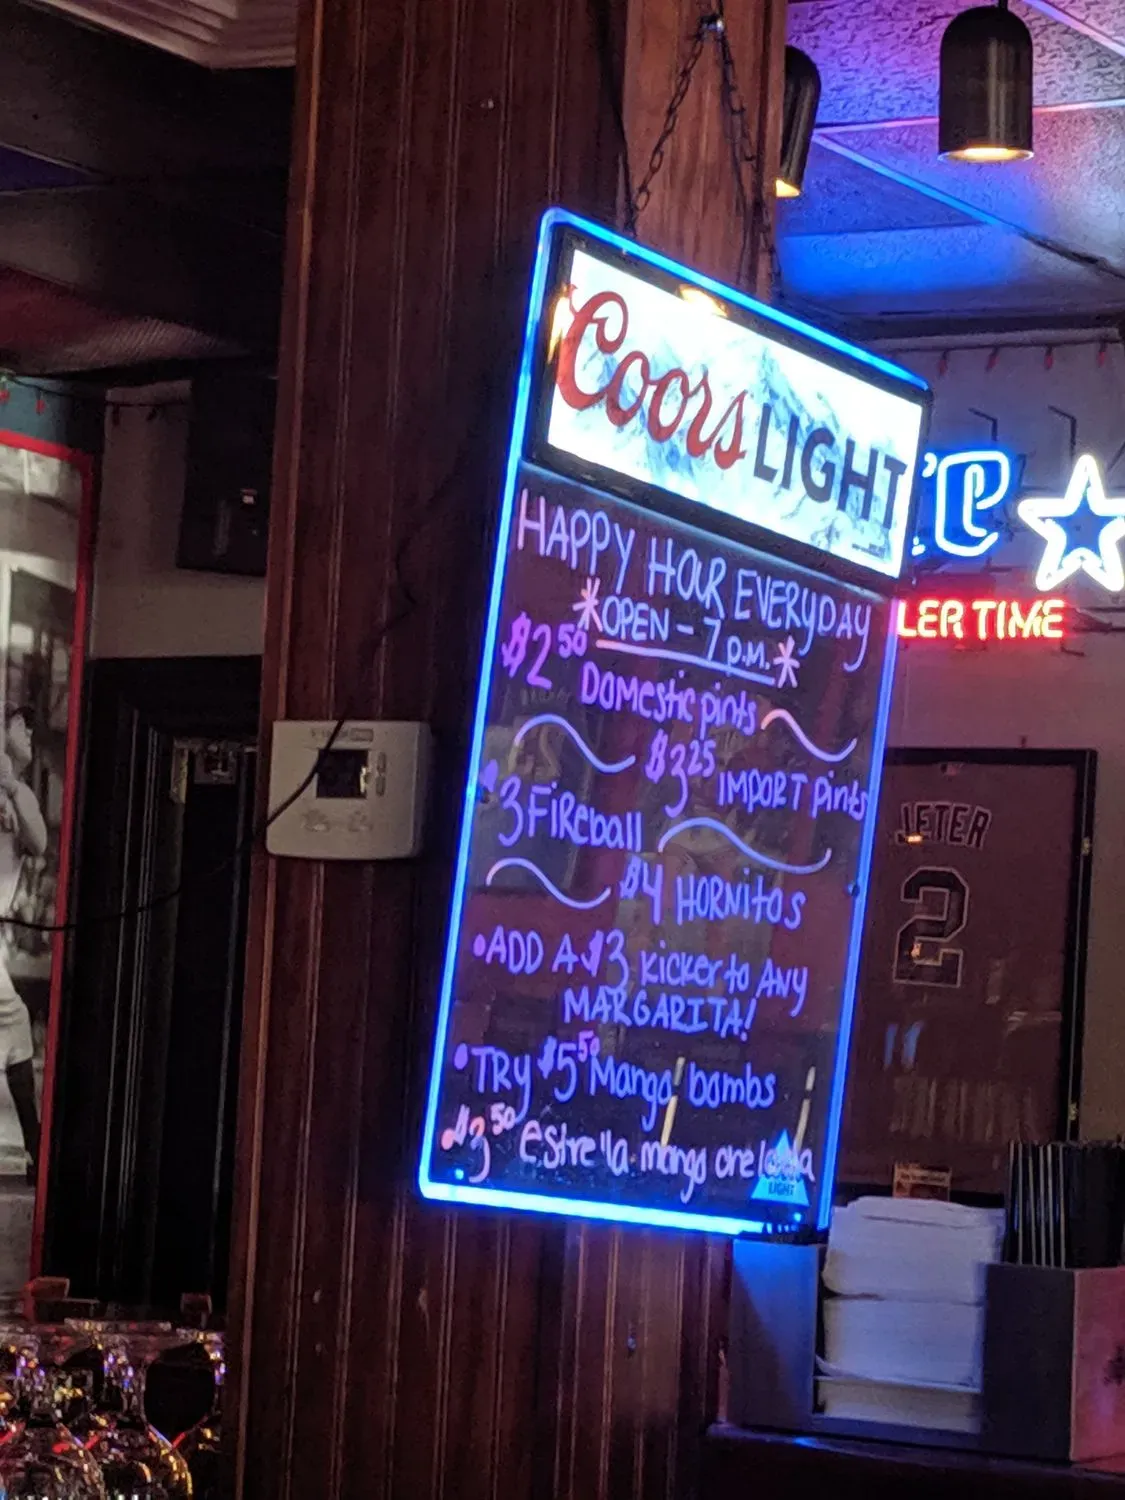 Coors LIGHT
HAPPY HOUR EVERYDAY
*OPEN - 7 p.m.*
$2.50 Domestic pints
$3.25 IMPORT pints
$3 Fireball
$4 HORNitos
•ADD A $3 kicker to ANy
MARGARITA!
•TRy $5.50 Mango bombs
•$3.50 estrella mango one
LIGHT
LER TIME
JETER
2